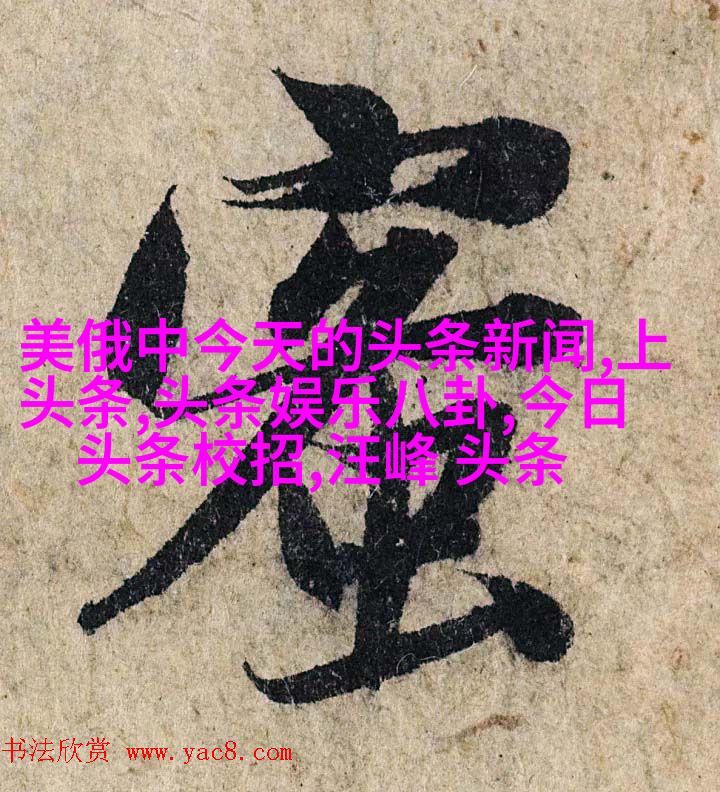 美俄中今天的头条新闻,上
头条,头条娱乐八卦,今日
头条校招,汪峰 头条
书法欣赏 www.yac8.com